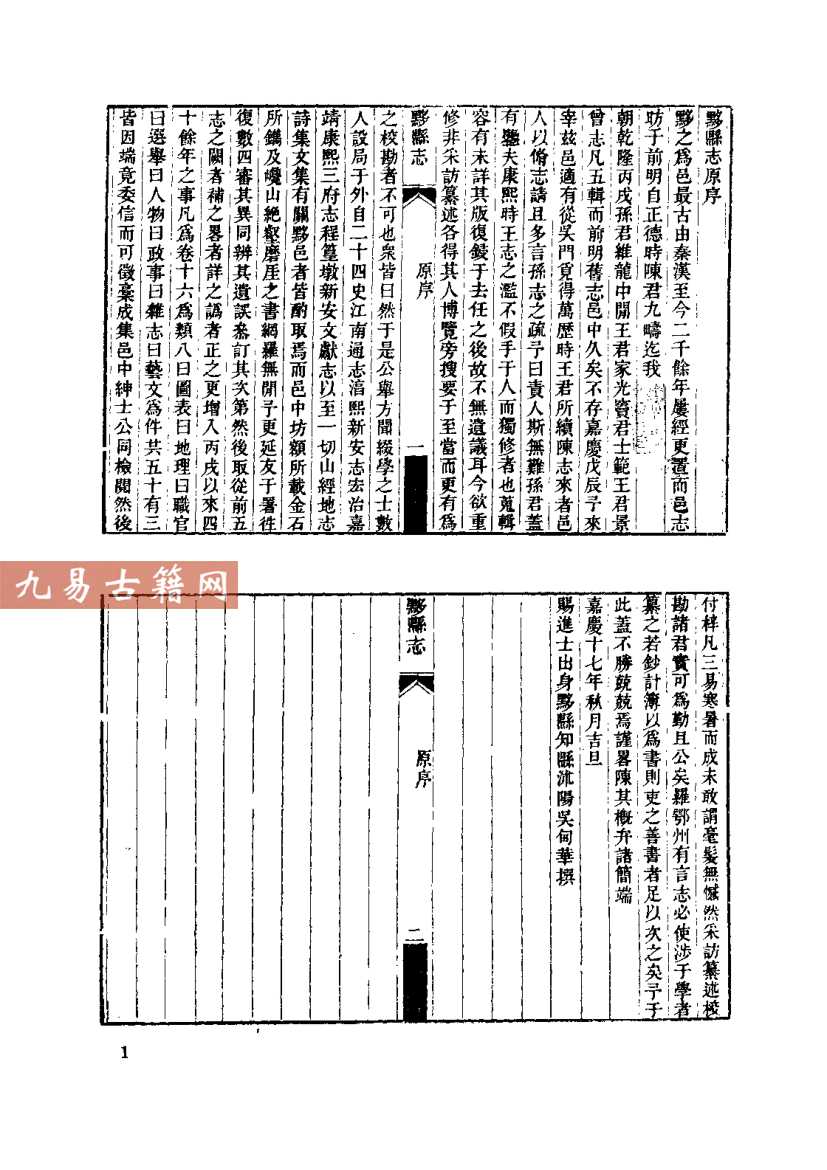 黟縣志原序
黟之爲邑最古由秦漢至今二千餘年屢經更置而邑志
昉于前明自正德時陳君九疇迄我
朝乾隆丙戌孫君維龍中間王君家光竇君士範王君景
曾志凡五輯而前明舊志邑中久矣不存嘉慶戊辰予來
宰茲邑適有從吳門覓得萬歷時王君所續陳志來者邑
人以脩志請且多言孫志之疏予曰責人斯無難孫君蓋
有鑒夫康熙時王志之濫不假手于人而獨修者也蒐輯
容有未詳其版復鋟于去任之後故不無遺議耳今欲重
修非采訪纂述各得其人博覽旁搜要于至當而更有爲
黟縣志
原序
一
之校勘者不可也衆皆曰然于是公舉方聞綴學之士數
人設局于外自二十四史江南通志淯熙新安志宏治嘉
靖康熙三府志程篁墩新安文獻志以至一切山經地志
詩集文集有關黟邑者皆酌取焉而邑中坊額所載金石
所鐫及巉山絶壑磨厓之書網羅無閒予更延友于署徃
復數四審其異同辨其遺誤叅訂其次第然後取從前五
志之闕者補之畧者詳之譌者正之更增入丙戌以來四
十餘年之事凡爲卷十六爲類八曰圖表曰地理曰職官
曰選舉曰人物曰政事曰雜志曰藝文爲件共五十有三
皆因端竟委信而可徵藁成集邑中紳士公同檢閱然後
付梓凡三易寒暑而成未敢謂毫髮無憾然采訪纂述校
勘諸君實可爲勤且公矣羅鄂州有言志必使涉于學者
纂之若鈔計簿以爲書則吏之善書者足以次之矣予于
此蓋不勝兢兢焉謹畧陳其概弁諸簡端
嘉慶十七年秋月吉旦
賜進士出身黟縣知縣沭陽吳甸華撰
黟縣志
原序
二
九易古籍网
1